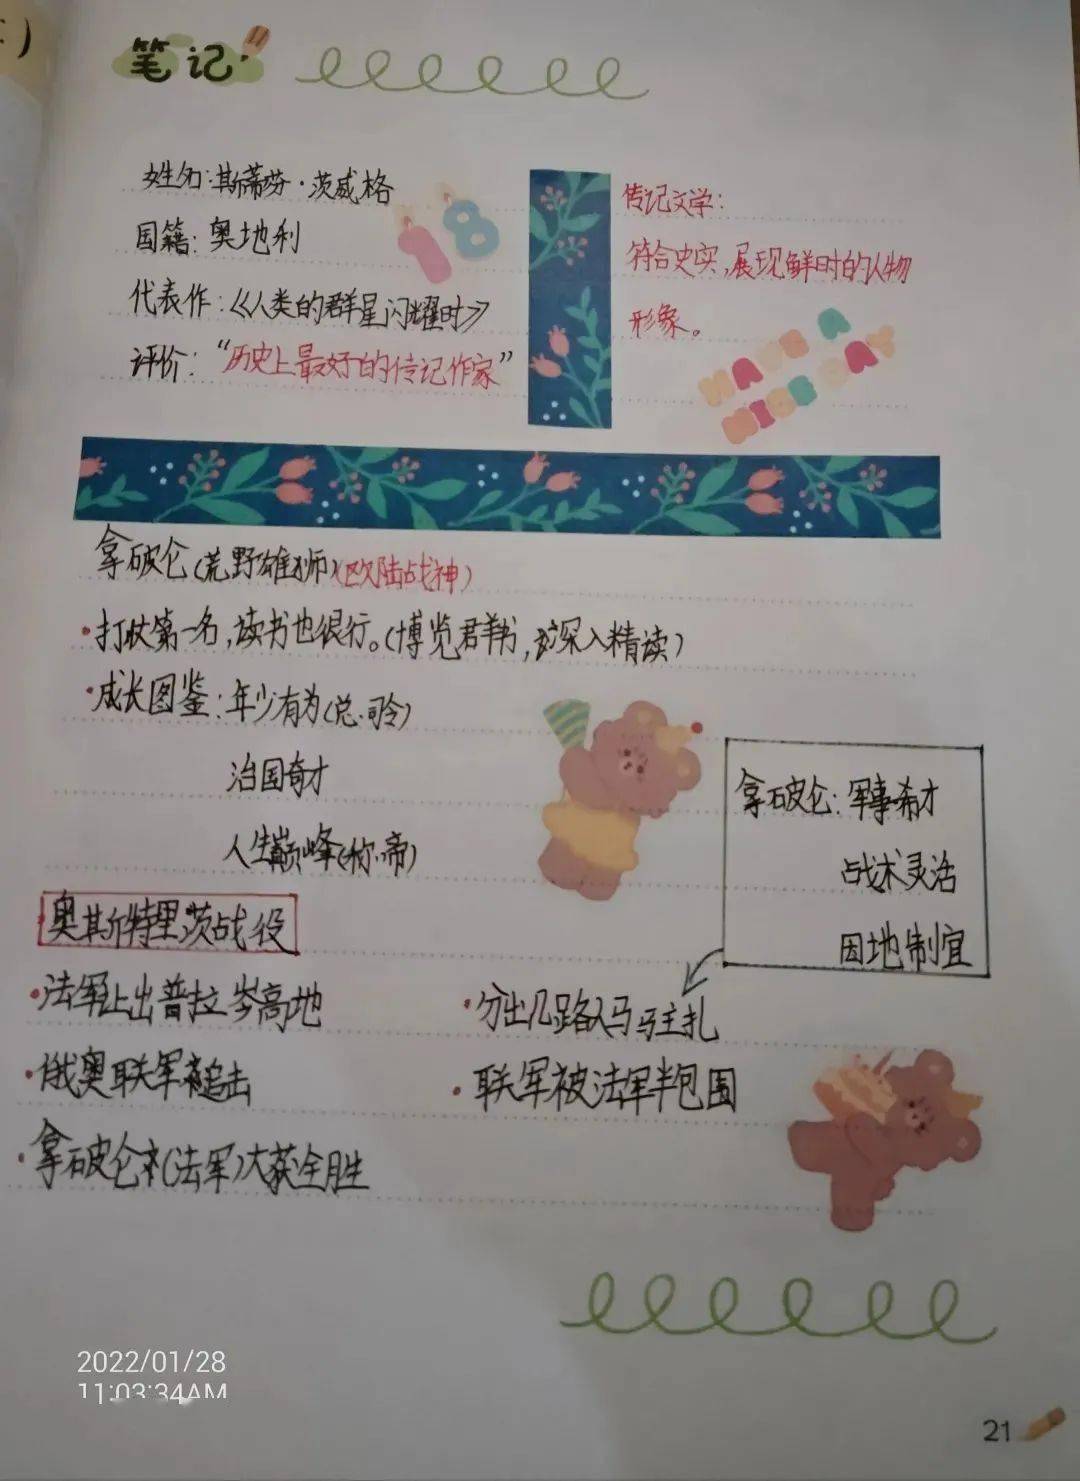 笔记
姓名:斯蒂芬·茨威格
国籍:奥地利
代表作:《人类的群星闪耀时》
评价:“历史上最好的传记作家”
18
传记文学:
符合史实,展现鲜明的人物
形象。
HAVE A
NICE DAY
拿破仑(荒野雄狮)(欧陆战神)
·打仗第一名,读书也很行。(博览群书,深入精读)
·成长图鉴:年少有为(总司令)
治国奇才
人生巅峰(称帝)
拿破仑:军事奇才
战术灵活
因地制宜
·奥斯特里茨战役
·法军让出普拉岑高地
·分出几路人马驻扎
·俄奥联军追击
·联军被法军半包围
·拿破仑(法军)大获全胜
2022/01/28
11:03:34AM
21